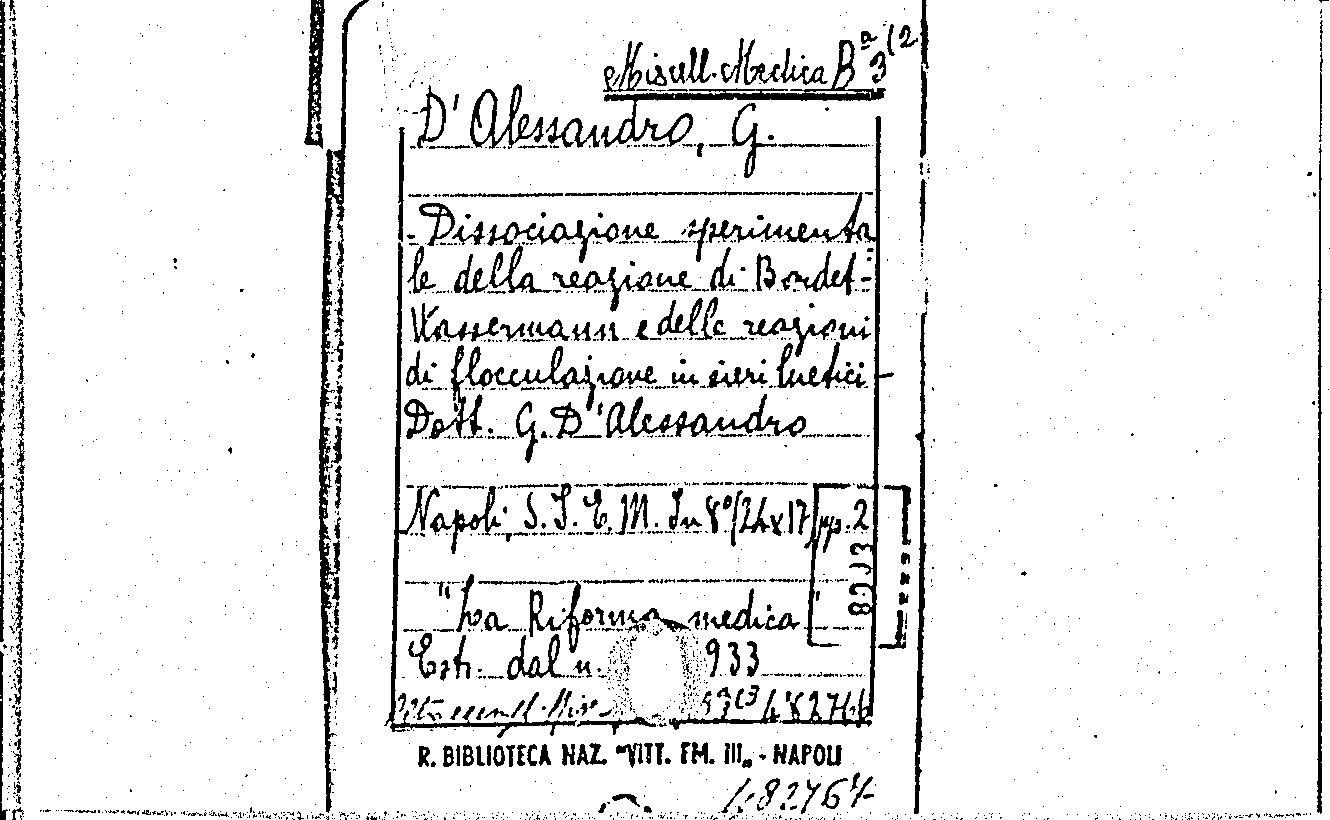 Miscell. Medica Bª 3 (2
D'Alessandro, G.
- Dissociazione sperimenta
le della reazione di Bordet-
Wassermann e delle reazioni
di flocculazione in sieri luetici -
Dott. G. D'Alessandro
Napoli, S.I.E.M. In 8° (24x17) pp. 2
"La Riforma medica"
Estr. dal n. 933
482764
R. BIBLIOTECA NAZ. "VITT. EM. III„ - NAPOLI
482764